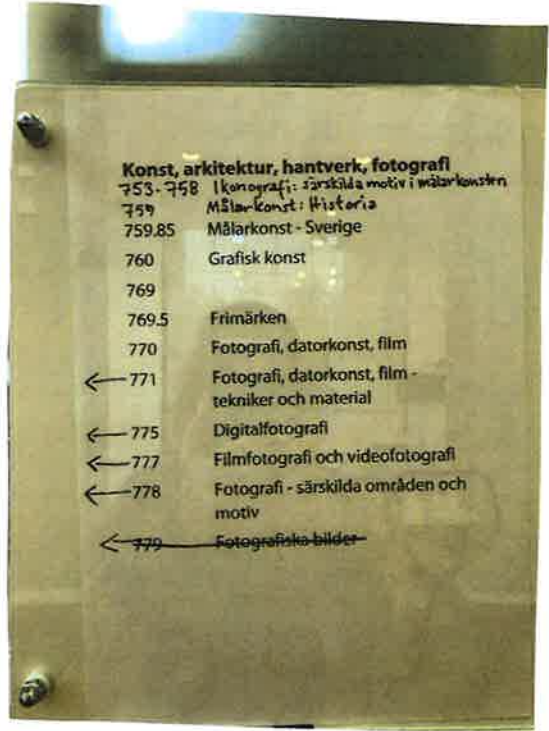 Konst, arkitektur, hantverk, fotografi
753-758 Ikonografi: särskilda motiv i målarkonsten
759 Målarkonst: Historia
759.85 Målarkonst - Sverige
760 Grafisk konst
769
769.5 Frimärken
770 Fotografi, datorkonst, film
771 Fotografi, datorkonst, film -
tekniker och material
775 Digitalfotografi
777 Filmfotografi och videofotografi
778 Fotografi - särskilda områden och
motiv
779 Fotografiska bilder